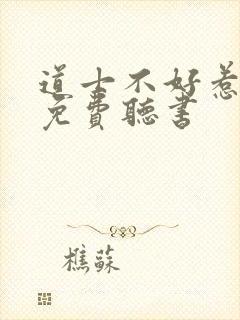 道士不好惹
免費聽書
樵蘇